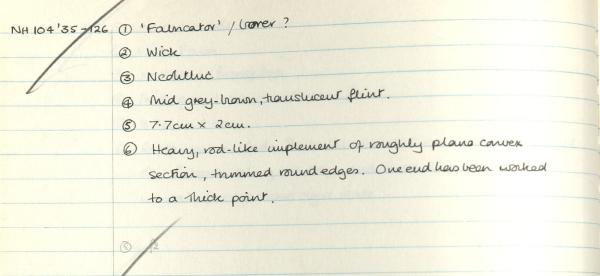 NH 104'35-126 ① 'Fabricator' / borer ?
② Wick
③ Neolithic
④ Mid grey-brown, translucent flint.
⑤ 7.7cm × 2cm.
⑥ Heavy, rod-like implement of roughly plano convex
section, trimmed round edges. One end has been worked
to a thick point.
⑤